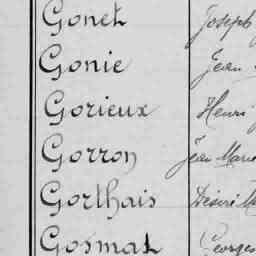 Gonet Joseph
Gonie Jean
Gorieux Henri
Gorron Jean Marie
Gorthais Désiré
Gosmat Georges